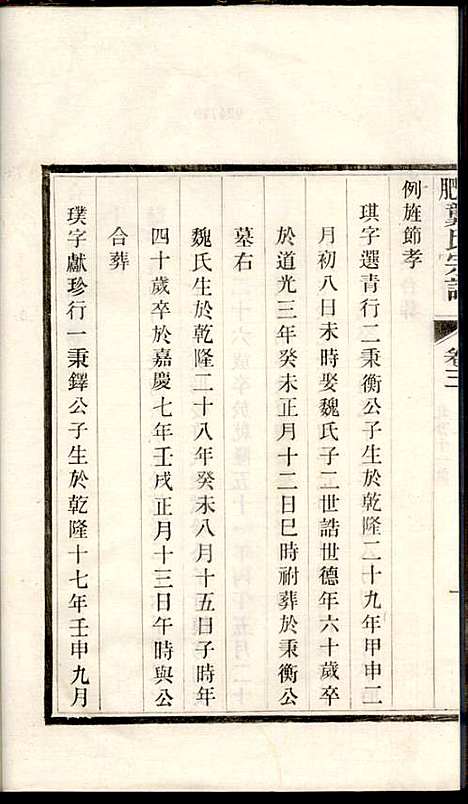 肥龔氏宗譜
卷三
例旌節孝
琪字選青行二秉衡公子生於乾隆二十九年甲申二
月初八日未時娶魏氏子二世誥世德年六十歲卒
於道光三年癸未正月十二日巳時祔葬於秉衡公
墓右
魏氏生於乾隆二十八年癸未八月十五日子時年
四十歲卒於嘉慶七年壬戌正月十三日午時與公
合葬
璞字獻珍行一秉鐸公子生於乾隆十七年壬申九月